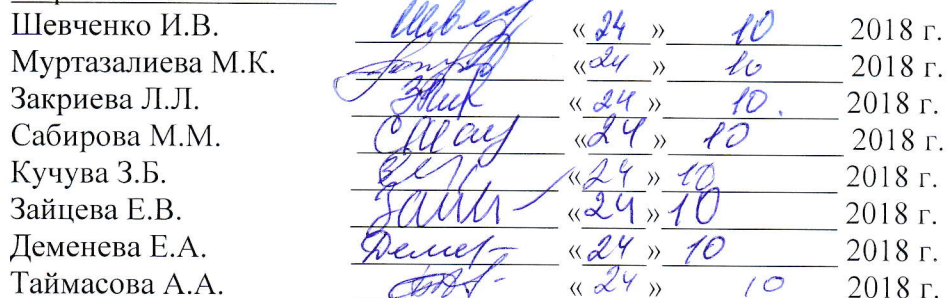 Шевченко И.В. « 24 » 10 2018 г.
Муртазалиева М.К. «24 » 10 2018 г.
Закриева Л.Л. « 24 » 10. 2018 г.
Сабирова М.М. «24 » 10 2018 г.
Кучува З.Б. «24 » 10 2018 г.
Зайцева Е.В. «24 » 10 2018 г.
Деменева Е.А. «24 » 10 2018 г.
Таймасова А.А. « 24 » 10 2018 г.